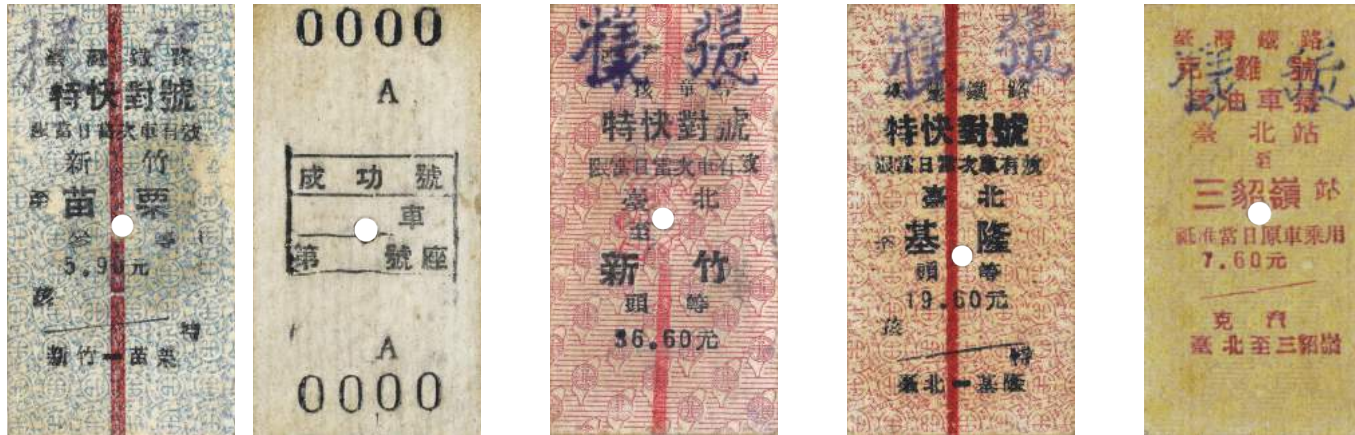 臺灣鐵路
特快對號
限當日當次車有效
新竹
至 苗栗
參等
5.90元
孩
特
新竹━苗栗
0000
A
成功號
車
第 號座
A
0000
樣張
孩 單 特
特快對號
限當日當次車有效
臺北
至
新竹
頭等
36.60元
樣張
臺灣鐵路
特快對號
限當日當次車有效
臺北
至 基隆
頭等
19.60元
孩
特
臺北━基隆
樣張
臺灣鐵路
克難號
汽油車票
臺北站
至
三貂嶺站
祗准當日原車乘用
7.60元
克 汽
臺北至三貂嶺